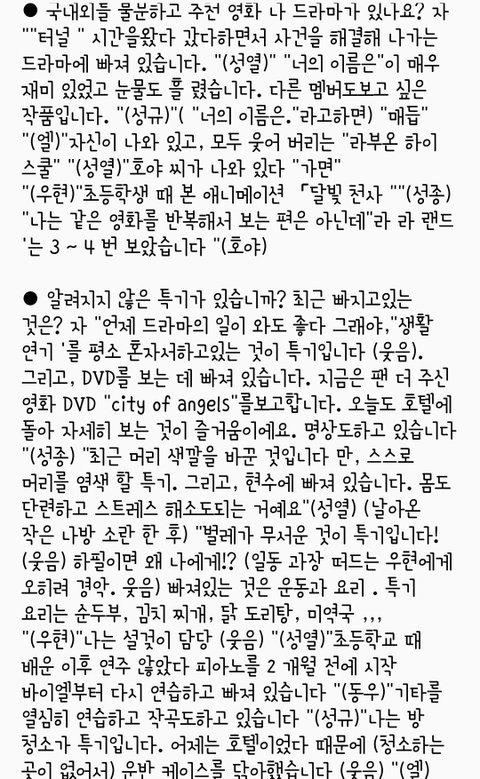 ● 국내외들 물문하고 추천 영화 나 드라마가 있나요? 자
""터널 " 시간을왔다 갔다하면서 사건을 해결해 나가는
드라마에 빠져 있습니다. "(성열)" "너의 이름은"이 매우
재미 있었고 눈물도 흘 렸습니다. 다른 멤버도보고 싶은
작품입니다. "(성규)"( "너의 이름은."라고하면) "매듭"
"(엘)"자신이 나와 있고, 모두 웃어 버리는 "라부온 하이
스쿨" "(성열)"호야 씨가 나와 있다 "가면"
"(우현)"초등학생 때 본 애니메이션 「달빛 천사 ""(성종)
"나는 같은 영화를 반복해서 보는 편은 아닌데"라 라 랜드
'는 3 ~ 4 번 보았습니다 "(호야)
● 알려지지 않은 특기가 있습니까? 최근 빠지고있는
것은? 자 "언제 드라마의 일이 와도 좋다 그래야,"생활
연기 '를 평소 혼자서하고있는 것이 특기입니다 (웃음).
그리고, DVD를 보는 데 빠져 있습니다. 지금은 팬 더 주신
영화 DVD "city of angels"를보고합니다. 오늘도 호텔에
돌아 자세히 보는 것이 즐거움이에요. 명상도하고 있습니다
"(성종) "최근 머리 색깔을 바꾼 것입니다 만, 스스로
머리를 염색 할 특기. 그리고, 현수에 빠져 있습니다. 몸도
단련하고 스트레스 해소도되는 거예요"(성열) (날아온
작은 나방 소란 한 후) "벌레가 무서운 것이 특기입니다!
(웃음) 하필이면 왜 나에게!? (일동 과장 떠드는 우현에게
오히려 경악. 웃음) 빠져있는 것은 운동과 요리 . 특기
요리는 순두부, 김치 찌개, 닭 도리탕, 미역국 ,,,
"(우현)"나는 설것이 담당 (웃음) "(성열)"초등학교 때
배운 이후 연주 않았다 피아노를 2 개월 전에 시작
바이엘부터 다시 연습하고 빠져 있습니다 "(동우)"기타를
열심히 연습하고 작곡도하고 있습니다 "(성규)"나는 방
청소가 특기입니다. 어제는 호텔이었다 때문에 (청소하는
곳이 없어서) 운반 케이스를 닦아했습니다 (웃음) "(엘)